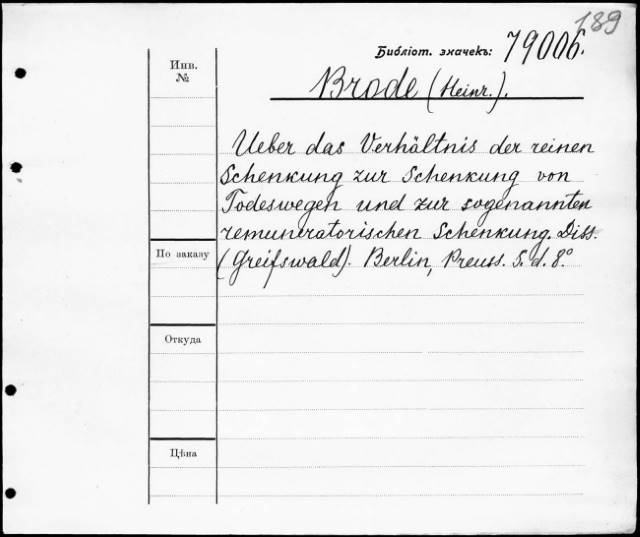 189
Библіот. значекъ: 79006.
Инв.
№
Brode (Heinr.).
Ueber das Verhältnis der reinen
Schenkung zur Schenkung von
Todeswegen und zur sogenannten
remuneratorischen Schenkung. Diss.
(Greifswald). Berlin, Preuss. S. d. 8.°
По заказу
Откуда
Цѣна